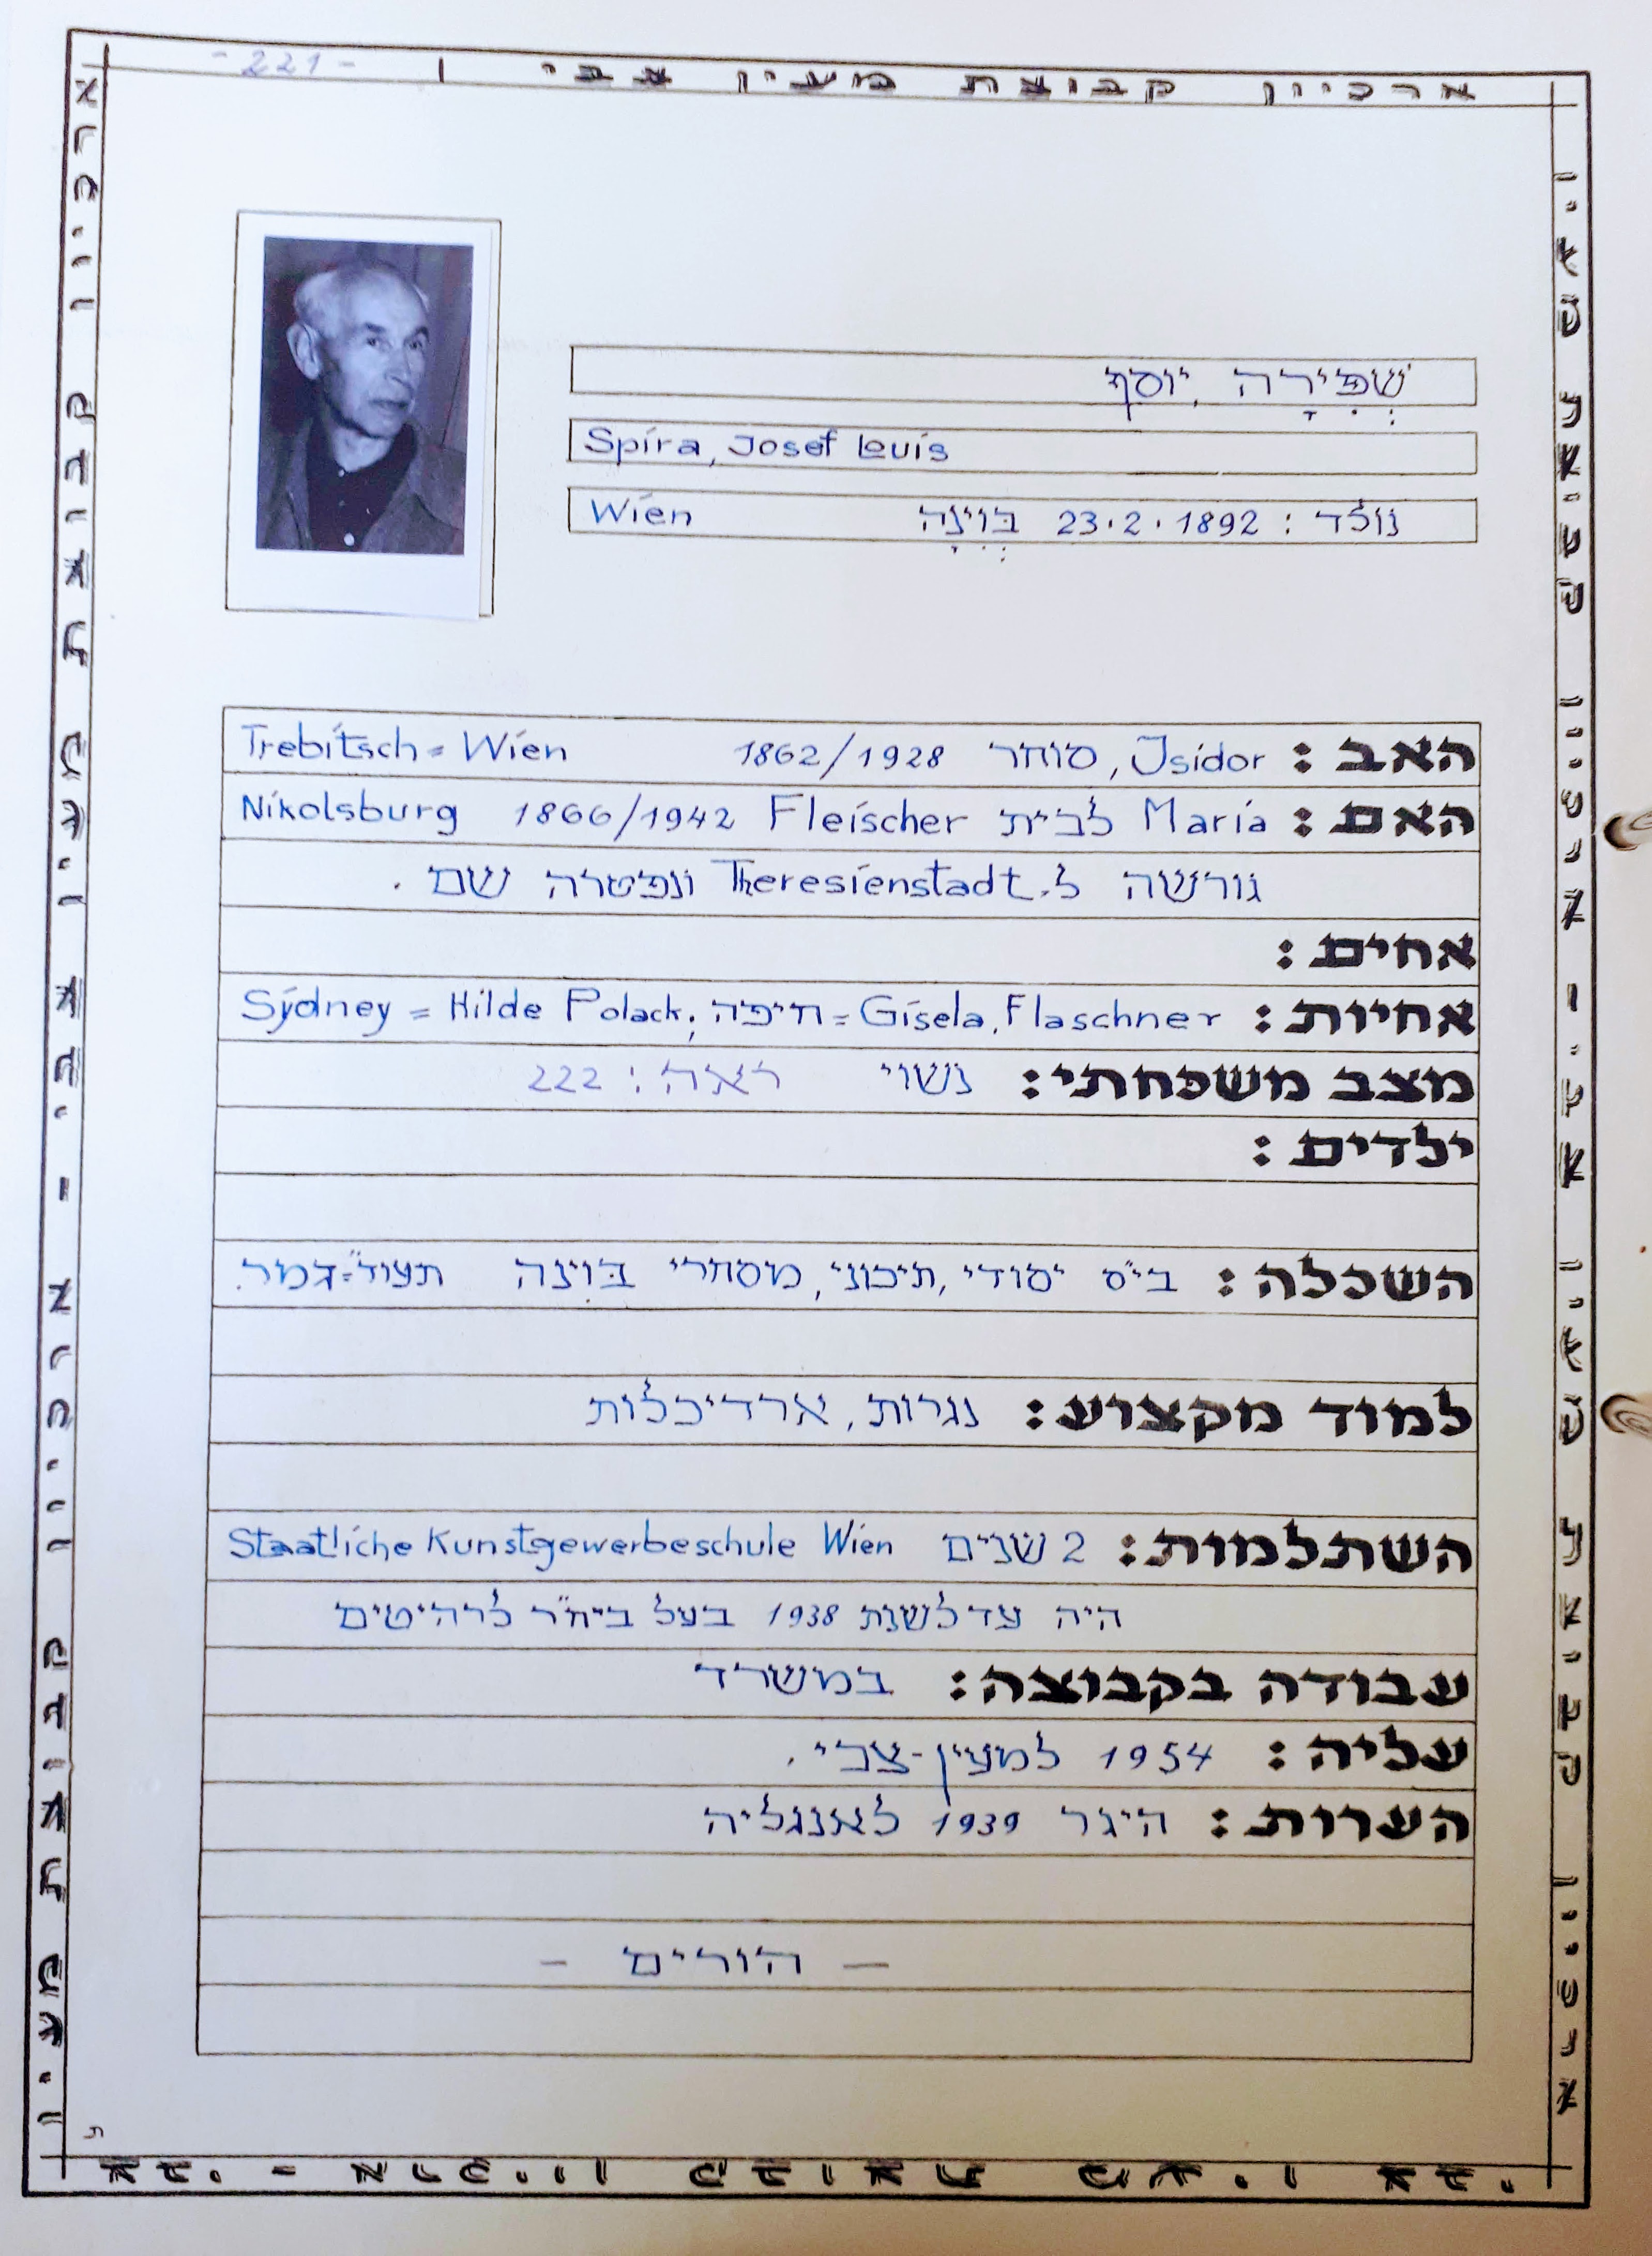 - 221 -
ארכיון קבוצת מעין צבי
שְׁפִּירָה, יוסף
Spira, Josef Louis
נולד : 23.2.1892 בְּוִינָה Wien
האב : Isidor, סוחר 1862/1928 Trebitsch = Wien
האם : Maria לבית Fleischer 1866/1942 Nikolsburg
גורשה ל. Theresienstadt ונפטרה שם .
אחים :
אחיות : Gisela, Flaschner = חיפה ; Hilde Polack = Sydney
מצב משפחתי : נשוי ראה : 222
ילדים :
השכלה : בי"ס יסודי, תיכוני, מסחרי בוינה תעוד"=גמר.
למוד מקצוע : נגרות, ארדיכלות
השתלמות : 2 שנים Staatliche Kunstgewerbeschule Wien
היה עד לשנת 1938 בעל ביח"ר לרהיטים
עבודה בקבוצה : במשרד
עליה : 1954 למעין-צבי .
הערות : היגר 1939 לאנגליה
– הורים –